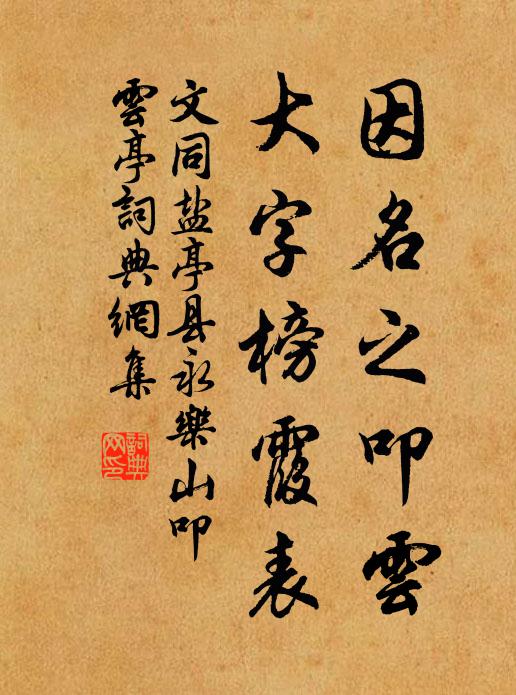 因名之叩雲
大字榜霞表
文同盐亭县永樂山叩
雲亭詞典網集
詞典
网印